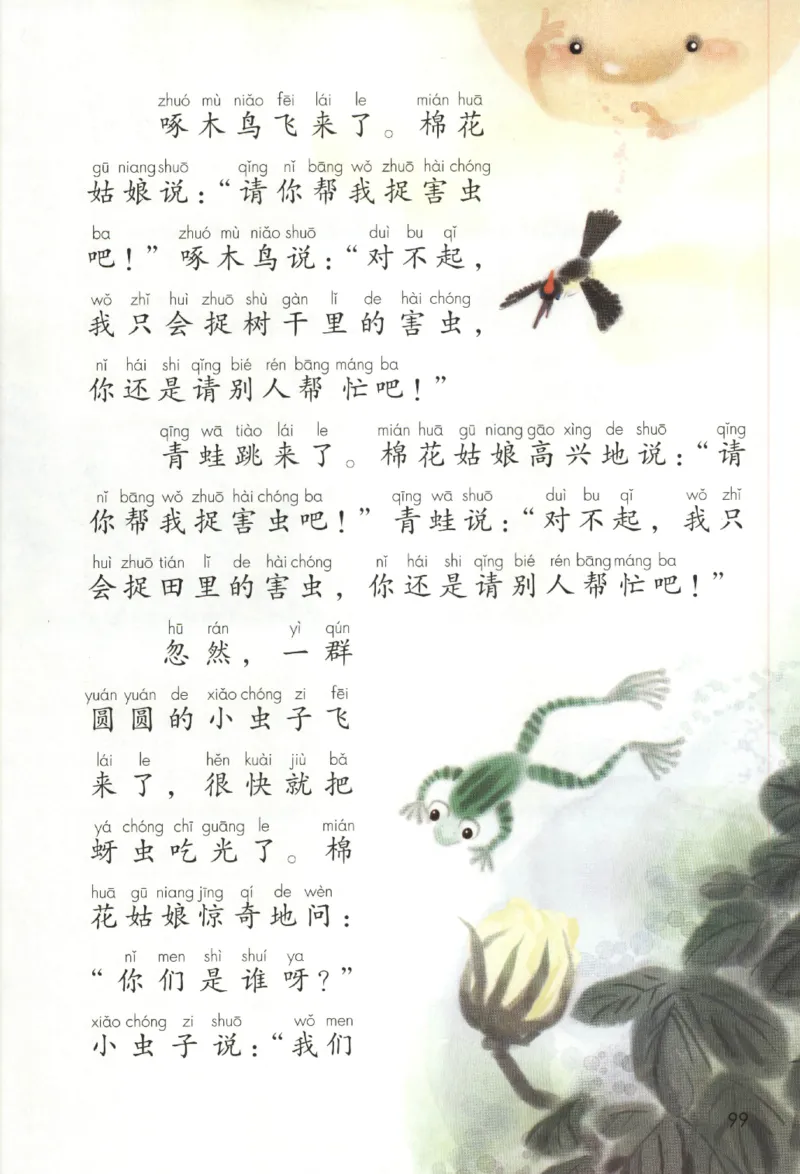 zhuó mù niǎo fēi lái le mián huā
啄木鸟飞来了。棉花
gū niang shuō qǐng nǐ bāng wǒ zhuō hài chóng
姑娘说：“请你帮我捉害虫
ba zhuó mù niǎo shuō duì bu qǐ
吧！”啄木鸟说：“对不起，
wǒ zhǐ huì zhuō shù gàn lǐ de hài chóng
我只会捉树干里的害虫，
nǐ hái shi qǐng bié rén bāng máng ba
你还是请别人帮忙吧！”
qīng wā tiào lái le mián huā gū niang gāo xìng de shuō qǐng
青蛙跳来了。棉花姑娘高兴地说：“请
nǐ bāng wǒ zhuō hài chóng ba qīng wā shuō duì bu qǐ wǒ zhǐ
你帮我捉害虫吧！”青蛙说：“对不起，我只
huì zhuō tián lǐ de hài chóng nǐ hái shi qǐng bié rén bāng máng ba
会捉田里的害虫，你还是请别人帮忙吧！”
hū rán yì qún
忽然，一群
yuán yuán de xiǎo chóng zi fēi
圆圆的小虫子飞
lái le hěn kuài jiù bǎ
来了，很快就把
yá chóng chī guāng le mián
蚜虫吃光了。棉
huā gū niang jīng qí de wèn
花姑娘惊奇地问：
nǐ men shì shuí ya
“你们是谁呀？”
xiǎo chóng zi shuō wǒ men
小虫子说：“我们
99